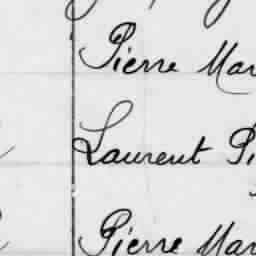 Pierre Mar
Laurent Pi
Pierre Mar